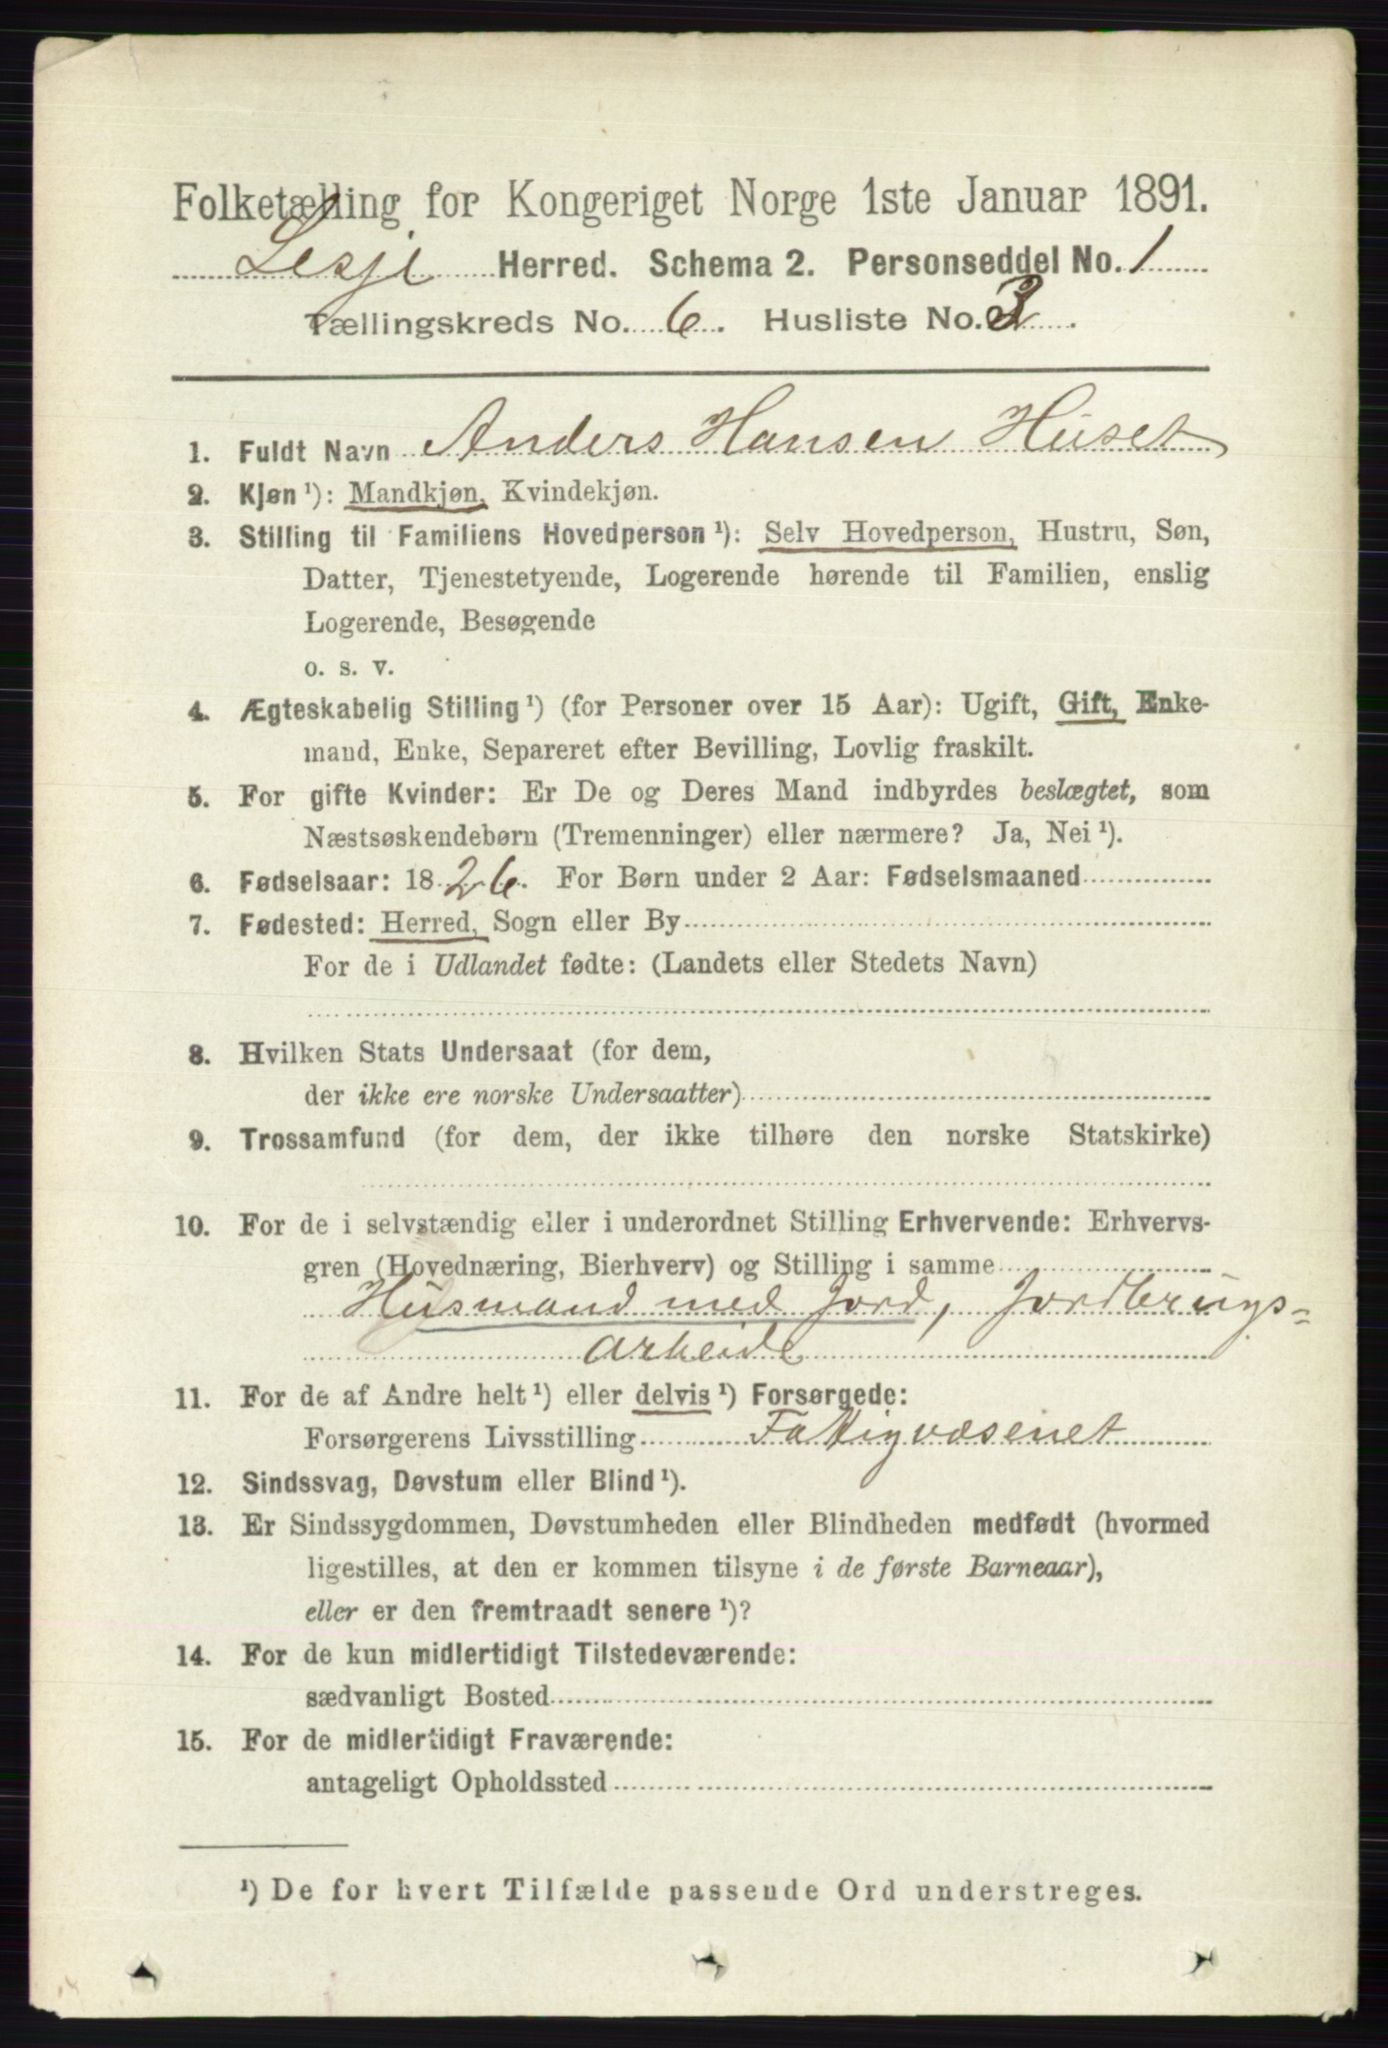 Folketælling for Kongeriget Norge 1ste Januar 1891.
Lesje Herred. Schema 2. Personseddel No. 1
Tællingskreds No. 6. Husliste No. 3.
1. Fuldt Navn Anders Hansen Huset
2. Kjøn ¹): Mandkjøn, Kvindekjøn.
3. Stilling til Familiens Hovedperson ¹): Selv Hovedperson, Hustru, Søn,
Datter, Tjenestetyende, Logerende hørende til Familien, enslig
Logerende, Besøgende
o. s. v.
4. Ægteskabelig Stilling ¹) (for Personer over 15 Aar): Ugift, Gift, Enke-
mand, Enke, Separeret efter Bevilling, Lovlig fraskilt.
5. For gifte Kvinder: Er De og Deres Mand indbyrdes beslægtet, som
Næstsøskendebørn (Tremenninger) eller nærmere? Ja, Nei ¹).
6. Fødselsaar: 1826. For Børn under 2 Aar: Fødselsmaaned
7. Fødested: Herred, Sogn eller By
For de i Udlandet fødte: (Landets eller Stedets Navn)
8. Hvilken Stats Undersaat (for dem,
der ikke ere norske Undersaatter)
9. Trossamfund (for dem, der ikke tilhøre den norske Statskirke)
10. For de i selvstændig eller i underordnet Stilling Erhvervende: Erhvervs-
gren (Hovednæring, Bierhverv) og Stilling i samme
Husmand med Jord, Jordbrugs=
arbeide
11. For de af Andre helt ¹) eller delvis ¹) Forsørgede:
Forsørgerens Livsstilling Fattigvæsenet
12. Sindssvag, Døvstum eller Blind ¹).
13. Er Sindssygdommen, Døvstumheden eller Blindheden medfødt (hvormed
ligestilles, at den er kommen tilsyne i de første Barneaar),
eller er den fremtraadt senere ¹)?
14. For de kun midlertidigt Tilstedeværende:
sædvanligt Bosted
15. For de midlertidigt Fraværende:
antageligt Opholdssted
¹) De for hvert Tilfælde passende Ord understreges.